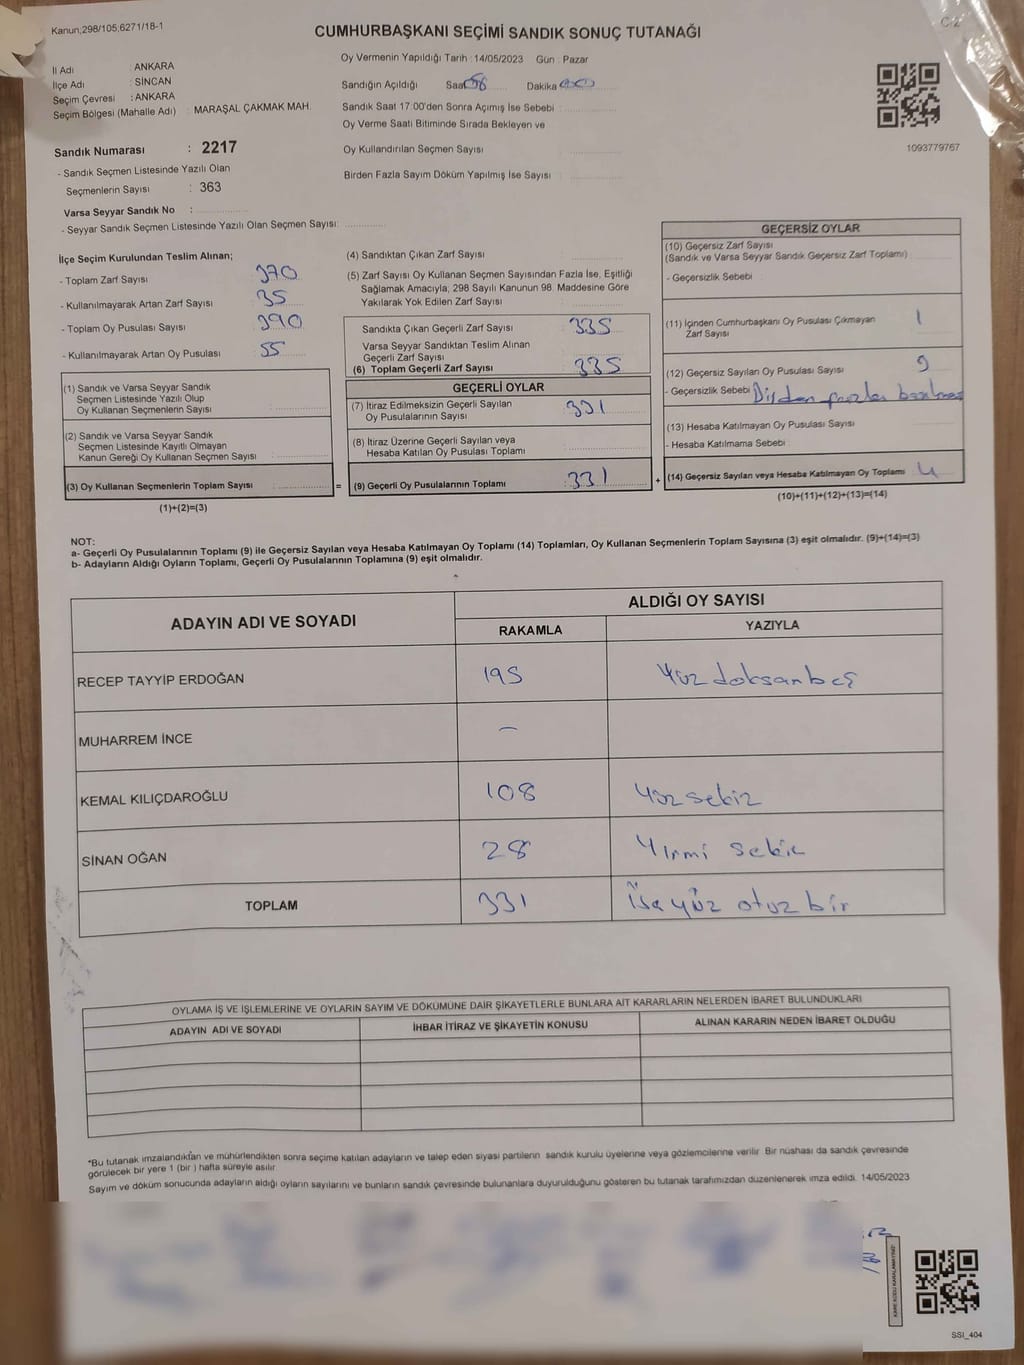 Kanun,298/105,6271/18-1
CUMHURBAŞKANI SEÇİMİ SANDIK SONUÇ TUTANAĞI
C-2
İl Adı : ANKARA
İlçe Adı : SİNCAN
Seçim Çevresi : ANKARA
Seçim Bölgesi (Mahalle Adı) : MARAŞAL ÇAKMAK MAH.
Sandık Numarası : 2217
- Sandık Seçmen Listesinde Yazılı Olan
Seçmenlerin Sayısı : 363
Varsa Seyyar Sandık No :
- Seyyar Sandık Seçmen Listesinde Yazılı Olan Seçmen Sayısı:
Oy Vermenin Yapıldığı Tarih : 14/05/2023 Gün : Pazar
Sandığın Açıldığı Saat 08 Dakika
Sandık Saat 17:00'den Sonra Açımış İse Sebebi :
Oy Verme Saati Bitiminde Sırada Bekleyen ve
Oy Kullandırılan Seçmen Sayısı
Birden Fazla Sayım Döküm Yapılmış İse Sayısı
1093779767
İlçe Seçim Kurulundan Teslim Alınan;
- Toplam Zarf Sayısı 370
- Kullanılmayarak Artan Zarf Sayısı 35
- Toplam Oy Pusulası Sayısı 390
- Kullanılmayarak Artan Oy Pusulası 55
(1) Sandık ve Varsa Seyyar Sandık
Seçmen Listesinde Yazılı Olup
Oy Kullanan Seçmenlerin Sayısı
(2) Sandık ve Varsa Seyyar Sandık
Seçmen Listesinde Kayıtlı Olmayan
Kanun Gereği Oy Kullanan Seçmen Sayısı
(3) Oy Kullanan Seçmenlerin Toplam Sayısı
(1)+(2)=(3)
=
(4) Sandıktan Çıkan Zarf Sayısı
(5) Zarf Sayısı Oy Kullanan Seçmen Sayısından Fazla İse, Eşitliği
Sağlamak Amacıyla; 298 Sayılı Kanunun 98. Maddesine Göre
Yakılarak Yok Edilen Zarf Sayısı
Sandıkta Çıkan Geçerli Zarf Sayısı 335
Varsa Seyyar Sandıktan Teslim Alınan
Geçerli Zarf Sayısı
(6) Toplam Geçerli Zarf Sayısı 335
GEÇERLİ OYLAR
(7) İtiraz Edilmeksizin Geçerli Sayılan
Oy Pusulalarının Sayısı 331
(8) İtiraz Üzerine Geçerli Sayılan veya
Hesaba Katılan Oy Pusulası Toplamı
(9) Geçerli Oy Pusulalarının Toplamı 331
+
GEÇERSİZ OYLAR
(10) Geçersiz Zarf Sayısı
(Sandık ve Varsa Seyyar Sandık Geçersiz Zarf Toplamı)
- Geçersizlik Sebebi :
(11) İçinden Cumhurbaşkanı Oy Pusulası Çıkmayan
Zarf Sayısı 1
(12) Geçersiz Sayılan Oy Pusulası Sayısı
- Geçersizlik Sebebi
(13) Hesaba Katılmayan Oy Pusulası Sayısı
- Hesaba Katılmama Sebebi :
(14) Geçersiz Sayılan veya Hesaba Katılmayan Oy Toplamı 4
(10)+(11)+(12)+(13)=(14)
NOT:
a- Geçerli Oy Pusulalarının Toplamı (9) ile Geçersiz Sayılan veya Hesaba Katılmayan Oy Toplamı (14) Toplamları, Oy Kullanan Seçmenlerin Toplam Sayısına (3) eşit olmalıdır. (9)+(14)=(3)
b- Adayların Aldığı Oyların Toplamı, Geçerli Oy Pusulalarının Toplamına (9) eşit olmalıdır.
ADAYIN ADI VE SOYADI
ALDIĞI OY SAYISI
RAKAMLA YAZIYLA
RECEP TAYYİP ERDOĞAN 195 Yüz doksan beş
MUHARREM İNCE –
KEMAL KILIÇDAROĞLU 108 Yüz sekiz
SİNAN OĞAN 28 Yirmi sekiz
TOPLAM 331 üç yüz otuz bir
OYLAMA İŞ VE İŞLEMLERİNE VE OYLARIN SAYIM VE DÖKÜMÜNE DAİR ŞİKAYETLERLE BUNLARA AİT KARARLARIN NELERDEN İBARET BULUNDUKLARI
ADAYIN ADI VE SOYADI İHBAR İTİRAZ VE ŞİKAYETİN KONUSU ALINAN KARARIN NEDEN İBARET OLDUĞU
*Bu tutanak imzalandıktan ve mühürlendikten sonra seçime katılan adayların ve talep eden siyasi partilerin sandık kurulu üyelerine veya gözlemcilerine verilir. Bir nüshası da sandık çevresinde
görülecek bir yere 1 (bir) hafta süreyle asılır.
Sayım ve döküm sonucunda adayların aldığı oyların sayılarını ve bunların sandık çevresinde bulunanlara duyurulduğunu gösteren bu tutanak tarafımızdan düzenlenerek imza edildi. 14/05/2023
KARE KODU KARALAMAYINIZ!
SSI_404